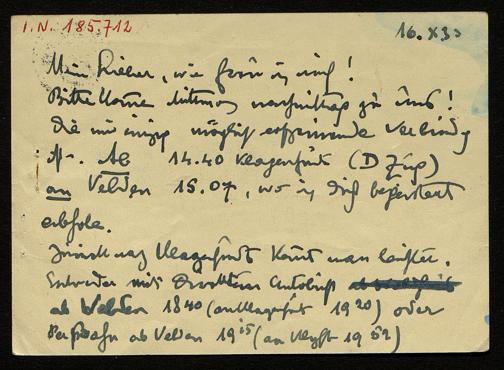 I.N. 185.712
16. X 33
Mein Lieber, wie freue ich mich!
Bitte komme Mittwoch nachmittag zu uns!
Die mir einzig möglich erscheinende Verbindung
ist. Ab 14.40 Klagenfurt (D Zug)
an Velden 15.07, wo ich dich begeistert
abhole.
Zurück nach Klagenfurt kannst man leichter.
Entweder mit Autobus
ab Velden 18 40 (an Klagenfurt 19 20) oder
Personenzug ab Velden 19 15 (an Klgft 19 52)